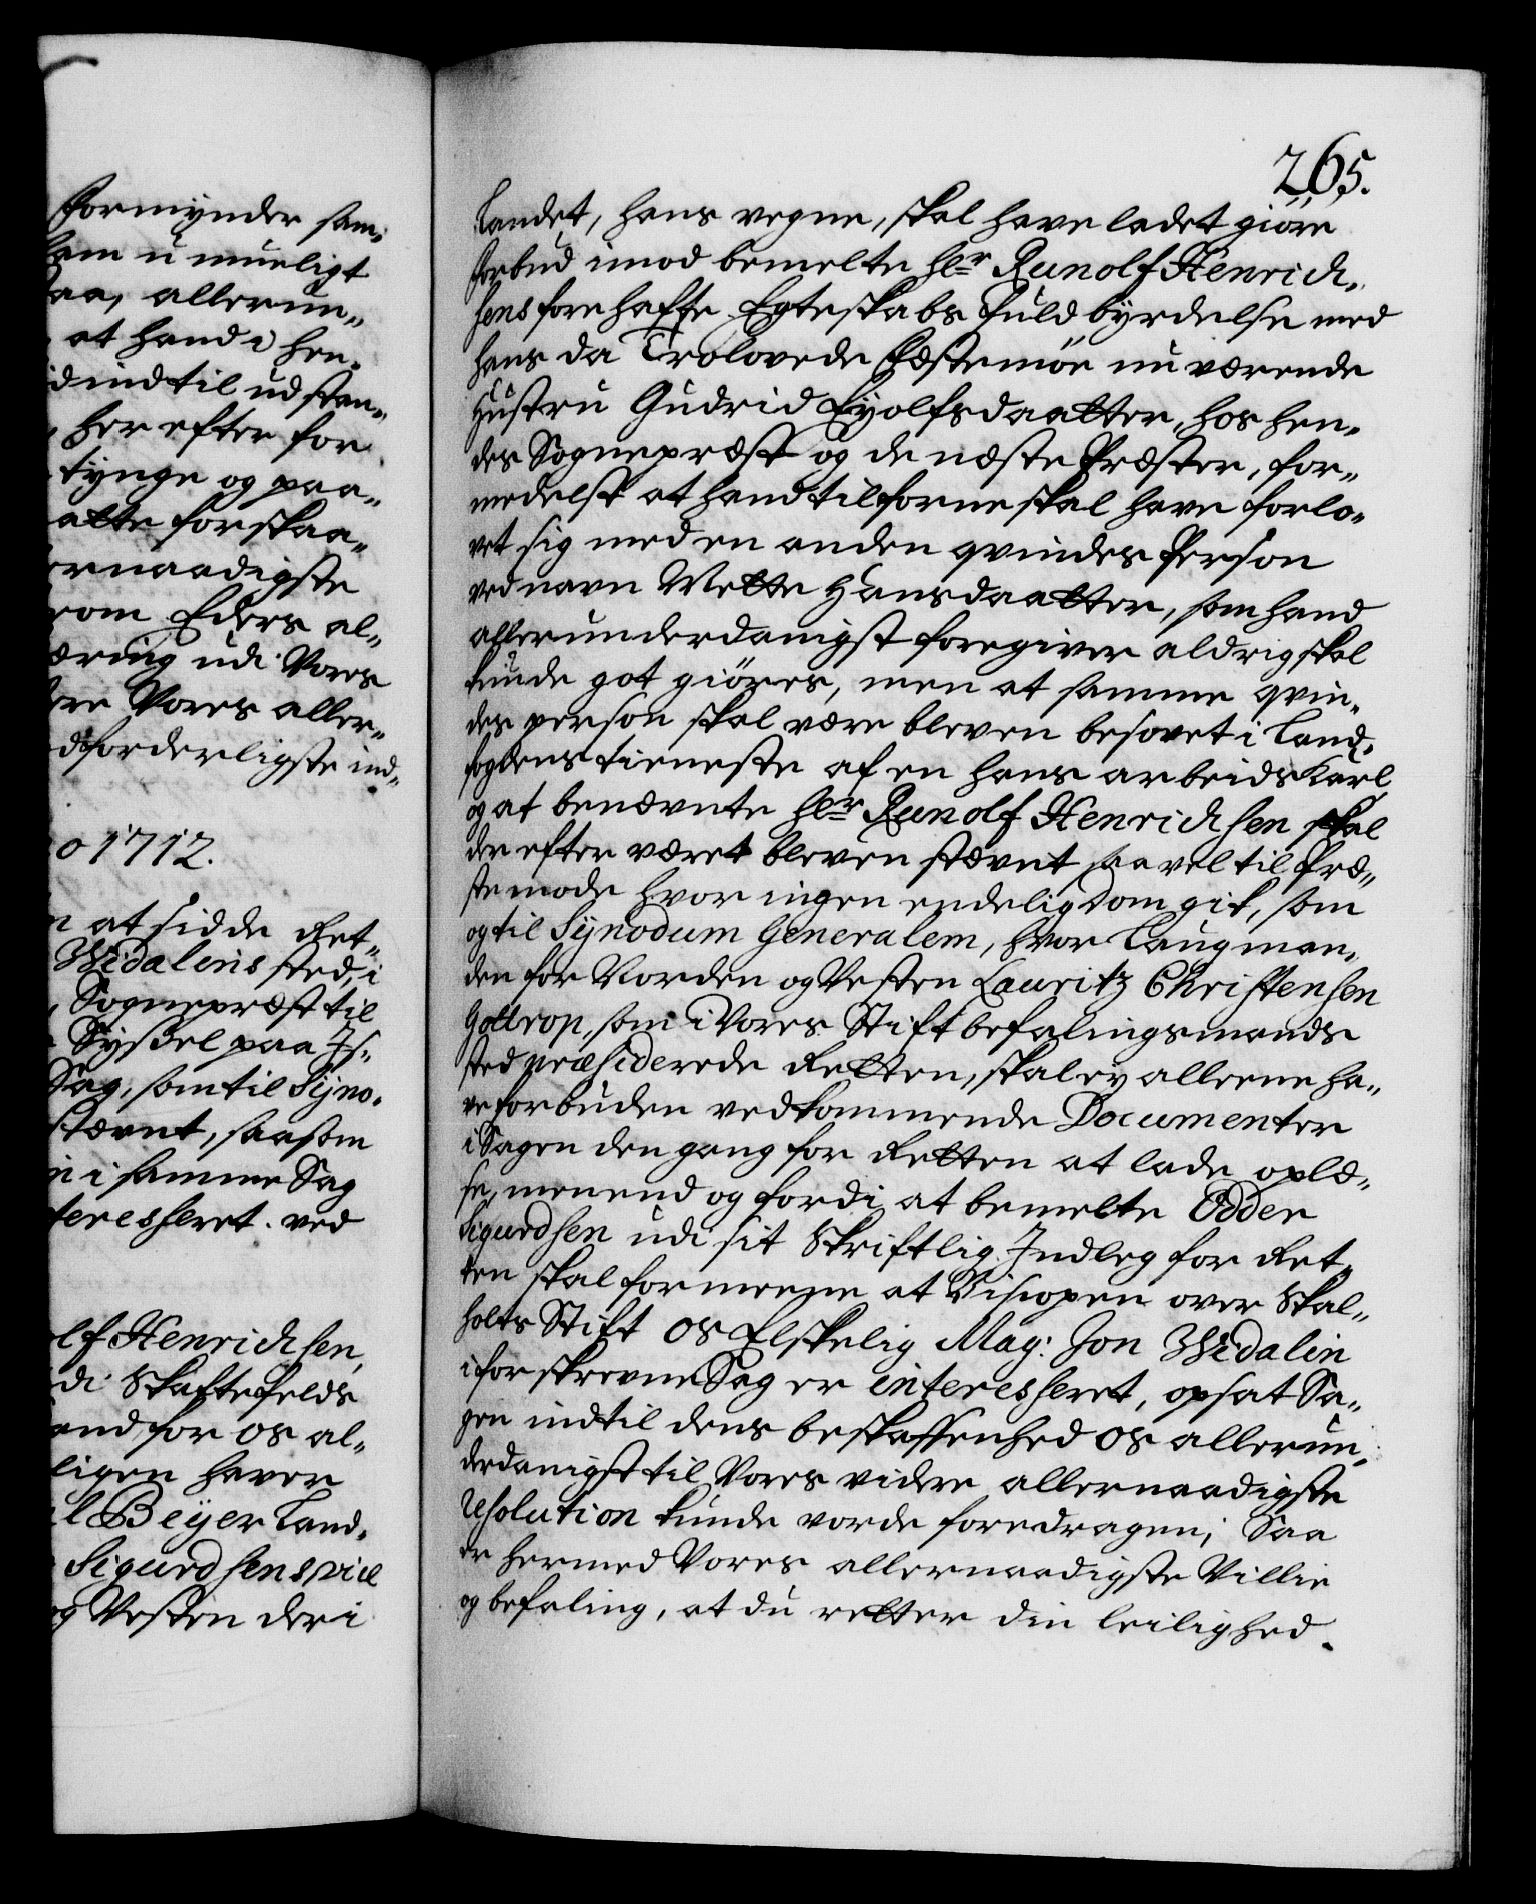 Formynder sam„
ham u mueligt
aa, allerun„
at hand i hen„
dindtil udstan„
her efter for
tynge og paa„
atte forskaa„
ernaadigste
rom Eders al„
æring udi Vores
ore Vores aller„
dforderligste ind„
o 1712.
n at sidde Ret„
Widalins sted, i
Sognepræst til
Syssel paa Is„
Sag, som til Syno„
stævnt, saasom
n i samme Sag
teresseret. ved
olf Henrichsen,
di Skaftefelds
end for os al„
ligen haver
l Beyer Land„
Sigurdsens vice
og Vesten der i
265.
Landet, hans vegne, skal have ladet giøre
forbud imod bemelte hr Runolf Henrich„
sens forehaffte Egteskabs fuldbyrdelse med
hans da Trolovede Fæstemøe nu værende
Hustru Gudrid Eyolfsdaatter, hos hen„
des Sognepræst og de næste Præster, for„
medelst at hand tilforne skal have forlo„
vet sig med en anden qvindes Person
ved navn Mette Hansdaatter, som hand
allerunderdanigst foregiver aldrig skal
kunde got giøres, men at samme qvin„
des person skal være bleven besovet i Land„
fogdens tieneste af en hans arbeids Karl,
og at benævnte hr Runolf Henrichsen skal
der efter været bleven stævnt saa vel til Præ„
stemode hvor ingen endelig dom gik, som
og til Synodum Generalem, hvor Laugman„
den for Norden og Vesten Lauritz Christensen
Gottrop, som i Vores Stiftbefalingsmands
sted præsiderede Retten, skal ey alleene ha„
ve forbuden vedkommende Documenter
i Sagen den gang for Retten at lade oplæ„
se, men end og fordi at bemelte Odder
Sigurdsen udi sit Skriftlig Indleg for Ret„
ten skal formeene at Biscopen over Skal„
holts Stift os Elskelig Mag: Jon Widalin
i forskrevne Sag er interesseret, opsat Sa„
gen indtil dens beskaffenhed os allerun„
derdanigst til Vores videre allernaadigste
Resolution kunde vorde foredragen; Saa
er hermed Vores allernaadigste Villie
og befaling, at du retter din leilighed